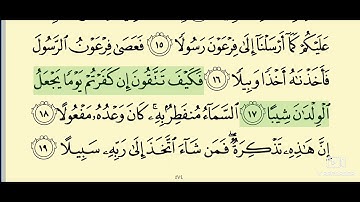 عَلَيْكُمْ كَمَآ أَرْسَلْنَآ إِلَىٰ فِرْعَوْنَ رَسُولًا ١٥ فَعَصَىٰ فِرْعَوْنُ ٱلرَّسُولَ
فَأَخَذْنَٰهُ أَخْذًا وَبِيلًا ١٦ فَكَيْفَ تَتَّقُونَ إِن كَفَرْتُمْ يَوْمًا يَجْعَلُ
ٱلْوِلْدَٰنَ شِيبًا ١٧ ٱلسَّمَآءُ مُنفَطِرٌۢ بِهِۦ ۚ كَانَ وَعْدُهُۥ مَفْعُولًا ١٨
إِنَّ هَٰذِهِۦ تَذْكِرَةٌ ۖ فَمَن شَآءَ ٱتَّخَذَ إِلَىٰ رَبِّهِۦ سَبِيلًا ١٩